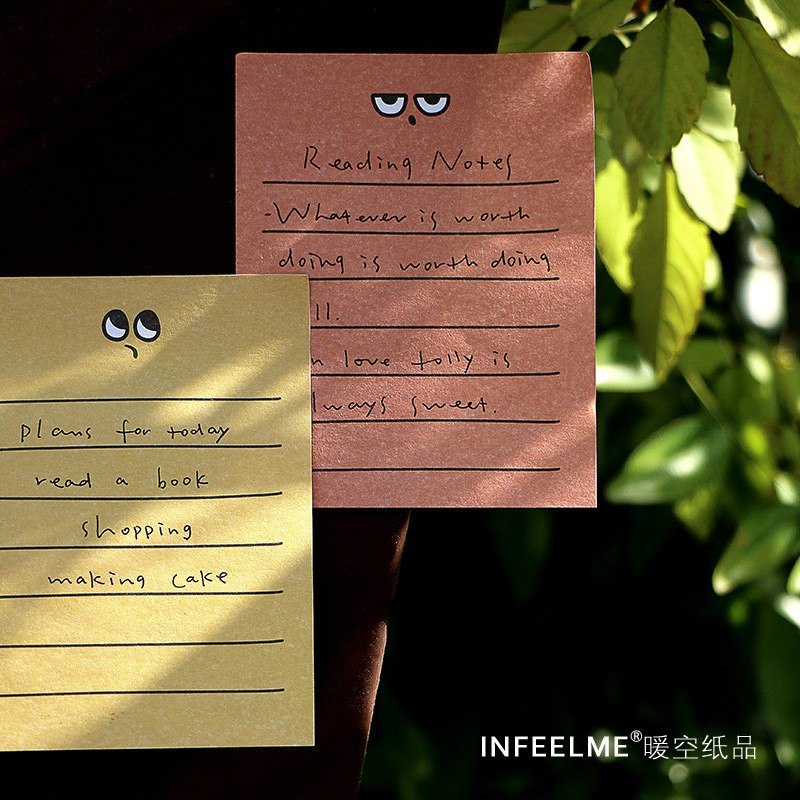 Reading Notes
-Whatever is worth
doing is worth doing
ll.
n love folly is
lways sweet.
plans for today
read a book
shopping
making cake
INFEELME®暖空纸品